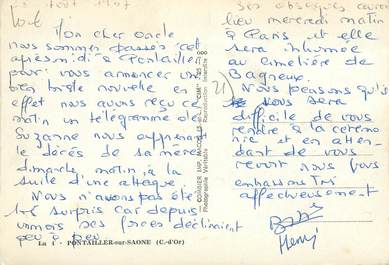 Mon cher oncle
nous sommes passés cet
après midi à Pontailler
pour vous annoncer une
bien triste nouvelle en
effet nous avons reçu ce
matin un télégramme de
Suzanne nous apprenant
le décès de sa mère
dimanche matin à la
suite d'une attaque.
Nous n'avons pas été
très surpris car depuis
un mois ses forces déclinaient
peu à peu
Ses obsèques auront
lieu mercredi matin
à Paris et elle
sera inhumée
au cimetière de
Bagneux.
2) Nous pensons qu'il
vous sera
difficile de vous
rendre à la cérémo
nie et en atten
dant de vous
revoir nous vous
embrassons très
affectueusement
Henri
COMBIER IMP. MACON
"CIM"
Photographie Véritable
Reproduction Interdite
PONTAILLER-sur-SAONE (C.-d'Or)